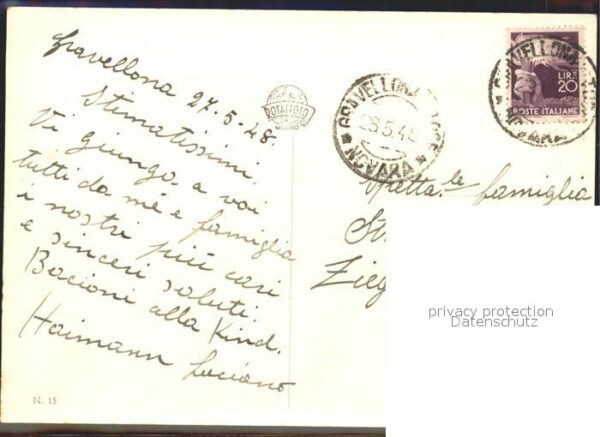 Gravellona 27-5-48.
Stimatissimi,
Vi giunga a voi
tutti da mè e famiglia
i nostri più cari
e sinceri saluti.
Bacioni alla Kind.
Haimann Luciano
N. 15
DOTALFOTO
MILANO
GRAVELLONA TOCE
NOVARA
LIRE
20
POSTE ITALIANE
GRAVELLONA
NOVARA
Spetta.le famiglia
privacy protection
Datenschutz